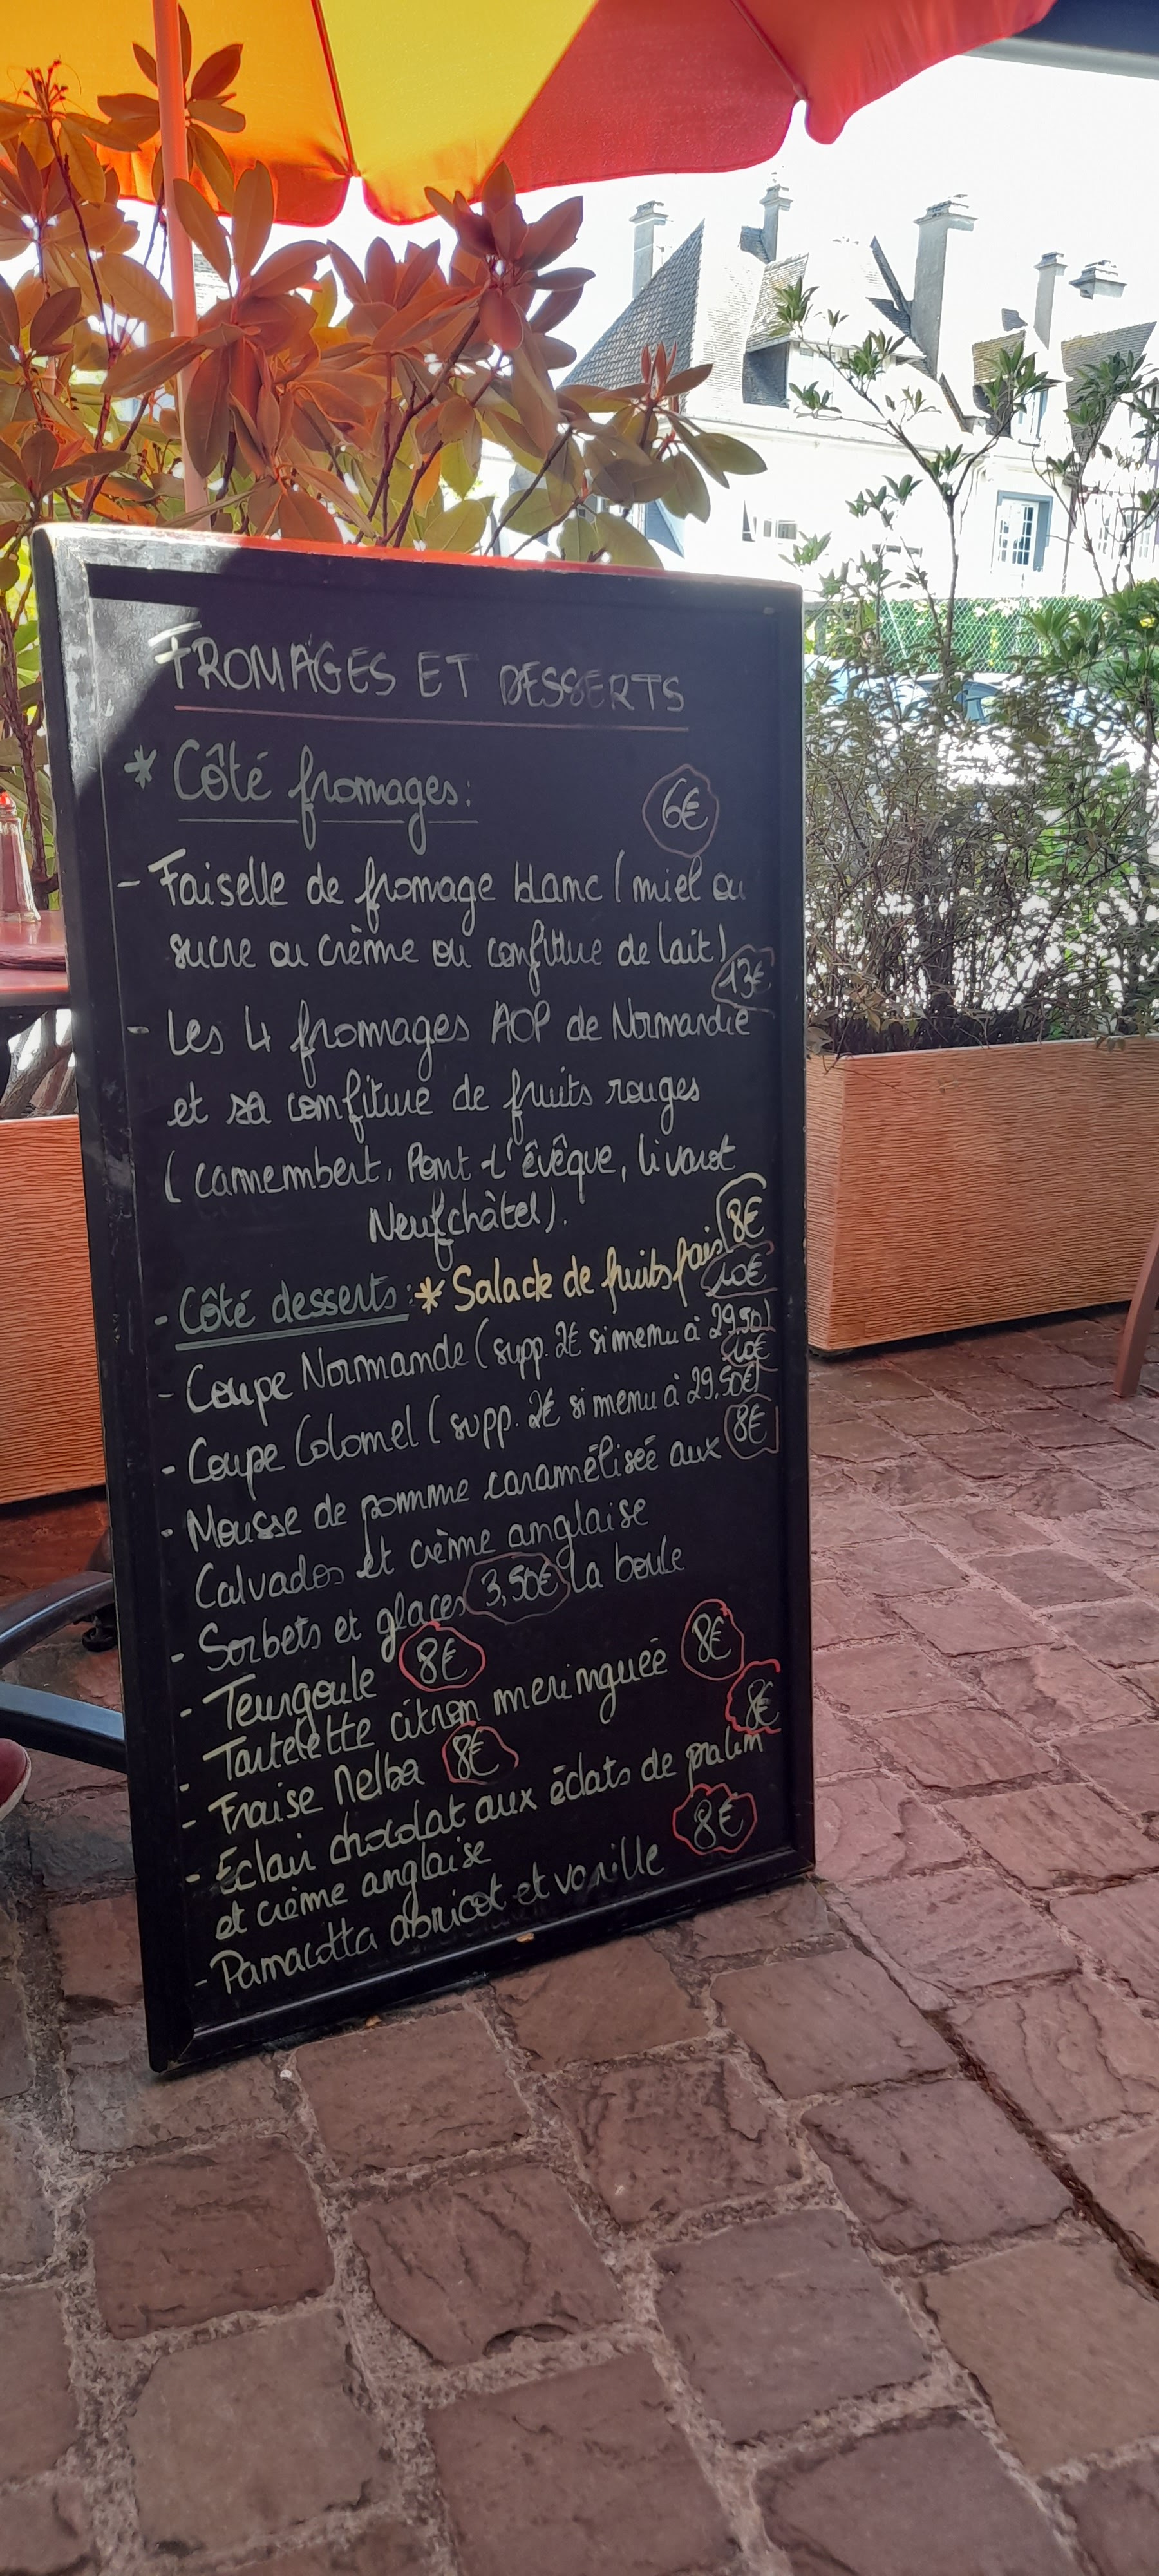 FROMAGES ET DESSERTS
* Côté fromages:
6€
- Faiselle de fromage blanc (miel ou
sucre ou crème ou confiture de lait)
13€
- Les 4 fromages AOP de Normandie
et sa confiture de fruits rouges
(camembert, Pont-l'évêque, livarot
Neufchâtel).
- Côté desserts: * Salade de fruits frais 8€
10€
- Coupe Normande (supp. 2€ si menu à 29,50)
10€
- Coupe Colonel (supp. 2€ si menu à 29,50€)
- Mousse de pomme caramélisée aux 8€
Calvados et crème anglaise
- Sorbets et glaces 3,50€ la boule
- Teurgoule 8€
- Tartelette citron meringuée 8€
- Fraise Melba 8€
8€
- Eclair chocolat aux éclats de pralin
et crème anglaise
- Panacotta abricot et vanille 8€